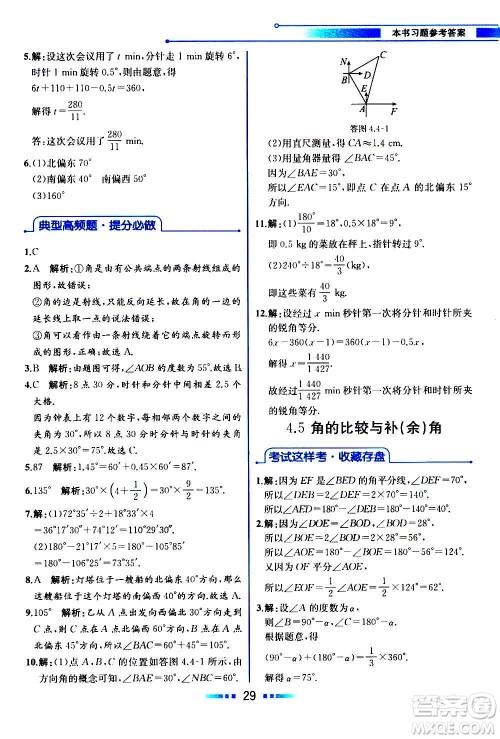 本书习题参考答案
5.解:设这次会议用了 t min,分针走一周,
时针 1 min 旋转 0.5°,则由题意,得
6t+110+110-0.5t=360,
解得 t=280/11
答:这次会议用了 280/11 min.
6.(1)北偏东 70°
(2)南偏东 40° 南偏西 50°
(3)160°
典型高频题·提分必做
1.C
2.A 解析:①角是由有公共端点的两条射线组成的
图形,故错误;
②角的大小与边的长短无关,故错误;
③射线本身就是无限延伸的,不能延长,只
能反向延长,故错误;
④角可以看作由一条射线绕着它的端点旋转而
形成的图形,故正确.故选 A.
3.B 解析:如题图,∠AOB 的度数为 60°.故选 B.
4.C 解析:8 点 30 分,时针和分针中间相差 2.5 个
大格.
因为钟表上有 12 个数字,每相邻两个数字之间
的夹角为 30°,所以 8 点 30 分分针与时针的夹角
是 2.5×30°=75°.故选 C.
5.87 解析:1.45°=60′×1.45=87′.
6.135° 解析:30°×(4+1/2)=30°×9/2=135°.
7.解:(1)72°35′÷2+18°33′×4
=36°17′30″+72°132′
=110°29′30″.
(2)18°20′32″+30°15′22″
=48°35′54″.
8.A 解析:灯塔位于一艘船的北偏东 40°方向,那
么这艘船位于这个灯塔的南偏西 40°的方向.
9.105° 解析:乙从 A 点出发向南偏西 15°方向走
到点 C,
所以∠BAC=105°.
10.解:(1)点 A,B,C 的位置如答图 4.4-1,由
方向角的概念可知,∠BAE=30°,∠NBC=
N
C
B
E
A
F
答图 4.4-1
(2)用直尺测量,得 AC≈1.4 cm.
(3)用量角器量得∠BAC=45°.
因为∠BAE=30°,
所以∠CAE=45°-30°=15°,
即点 C 在点 A 的北偏东 15°
方向.
11.解:(1)180°/10=18°,0.5×18°=9°,
即 0.5 kg 的菜放在秤上,指针转过 9°.
(2)240°÷18°=40/3,
即这些菜有 40/3 kg.
12.解:设经过 x min 秒针第一次将分针和时针所夹
的锐角等分.
6x-360(x-1)=360(x-1)-0.5x,
解得 x=1 440/1 427
故经过 1 440/1 427 min 秒针第一次将分针和时针所夹
的锐角等分.
4.5 角的比较与补(余)角
考试这样考·收藏存盘
1.解:因为 EF 是∠BED 的角平分线,∠DEF=70°,
所以∠DEB=2∠DEF=140°,
所以∠AED=180°-∠DEB=180°-140°=40°.
2.解:因为∠DOE=∠BOD,∠BOE=58°,
所以∠BOD=29°.
所以∠AOB=180°-29°=151°.
因为 OC 平分∠AOB,
3.解:设∠A 的度数为 α,
则∠A 的余角为 90°-α,补角为 180°-α.
根据题意,得
解得 α=60°.
29